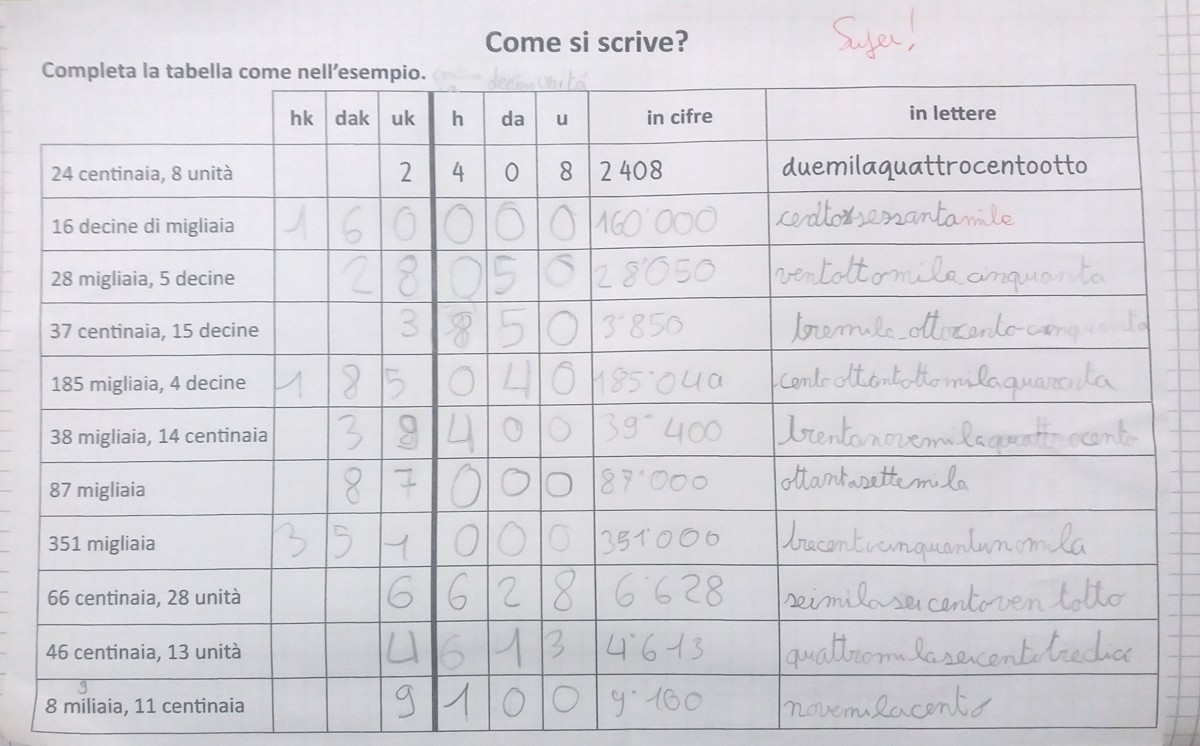 Come si scrive? Super!
Completa la tabella come nell'esempio. decine unità
hk dak uk h da u in cifre in lettere
24 centinaia, 8 unità 2 4 0 8 2 408 duemilaquattrocentootto
16 decine di migliaia 1 6 0 0 0 0 160˙000 centosessantamile
28 migliaia, 5 decine 2 8 0 5 0 28˙050 ventottomilacinquanta
37 centinaia, 15 decine 3 8 5 0 3˙850 tremilaottocentocinquanta
185 migliaia, 4 decine 1 8 5 0 4 0 185˙040 centoottantottomilaquaranta
38 migliaia, 14 centinaia 3 9 4 0 0 39˙400 trentanovemilaquattrocento
87 migliaia 8 7 0 0 0 87˙000 ottantasettemila
351 migliaia 3 5 1 0 0 0 351˙000 trecentocinquantunomila
66 centinaia, 28 unità 6 6 2 8 6˙628 seimilaseicentoventotto
46 centinaia, 13 unità 4 6 1 3 4˙613 quattromilaseicentotredici
g
8 miliaia, 11 centinaia 9 1 0 0 9˙100 novemilacento